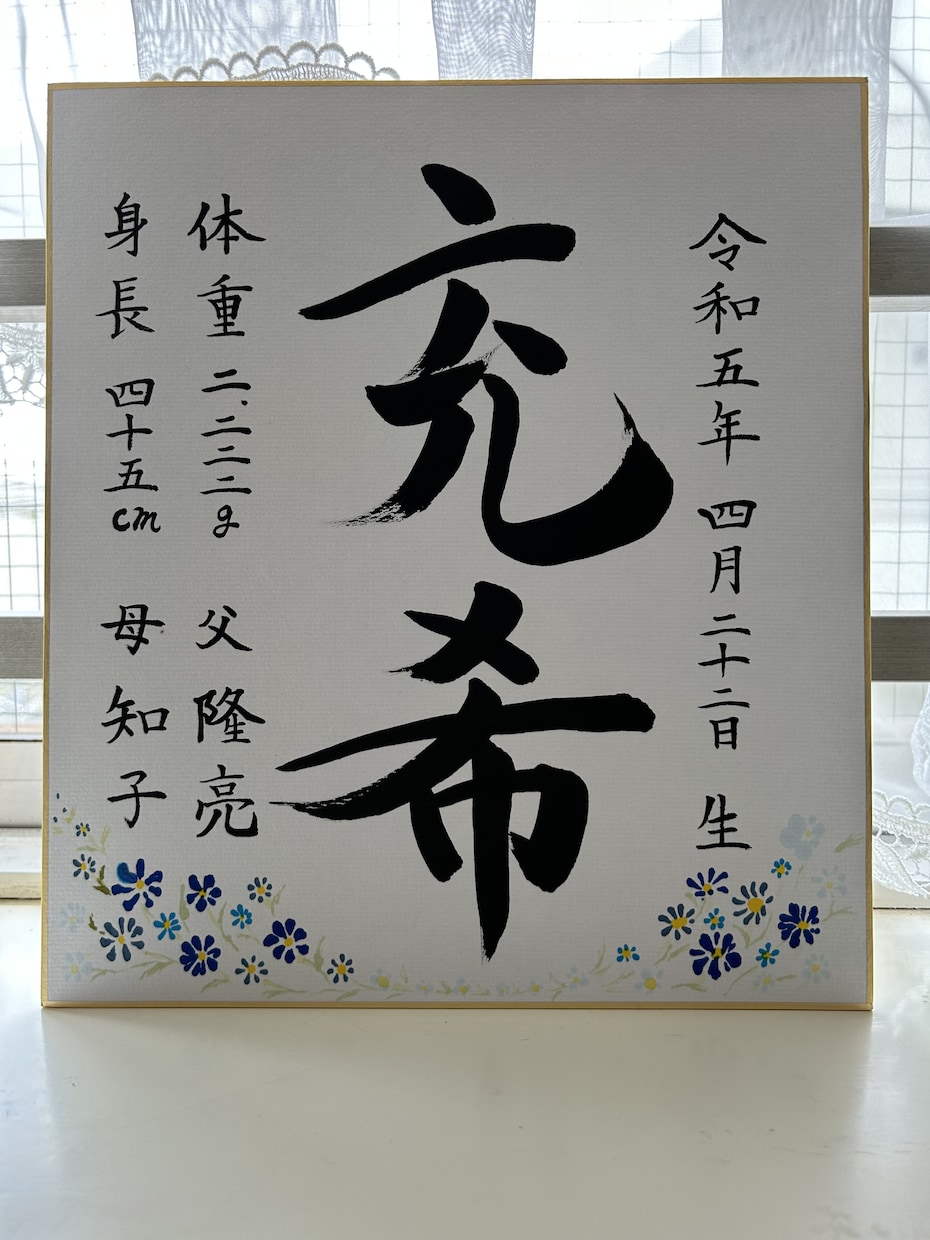 令和五年 四月二十二日 生
充希
体重 二、二三二g 父 隆亮
身長 四十五cm 母 知子